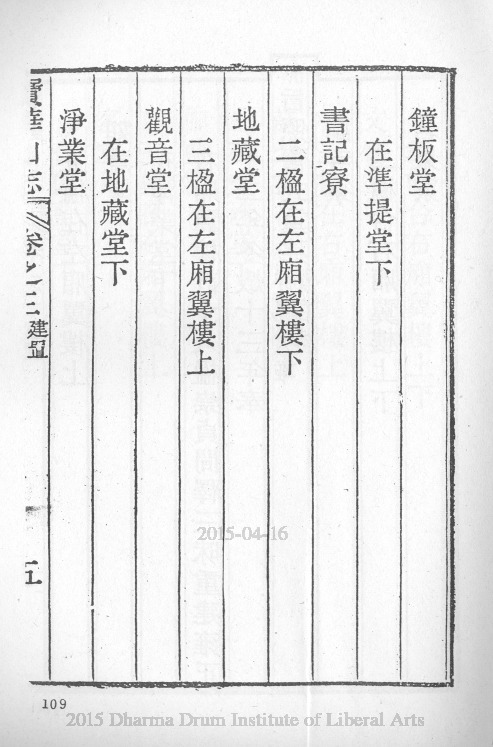 鐘板堂
在準提堂下
書記寮
二楹在左廂翼樓下
地藏堂
三楹在左廂翼樓上
觀音堂
在地藏堂下
淨業堂
寶華山志
卷之三
建置
五
2015-04-16
109
2015 Dharma Drum Institute of Liberal Arts